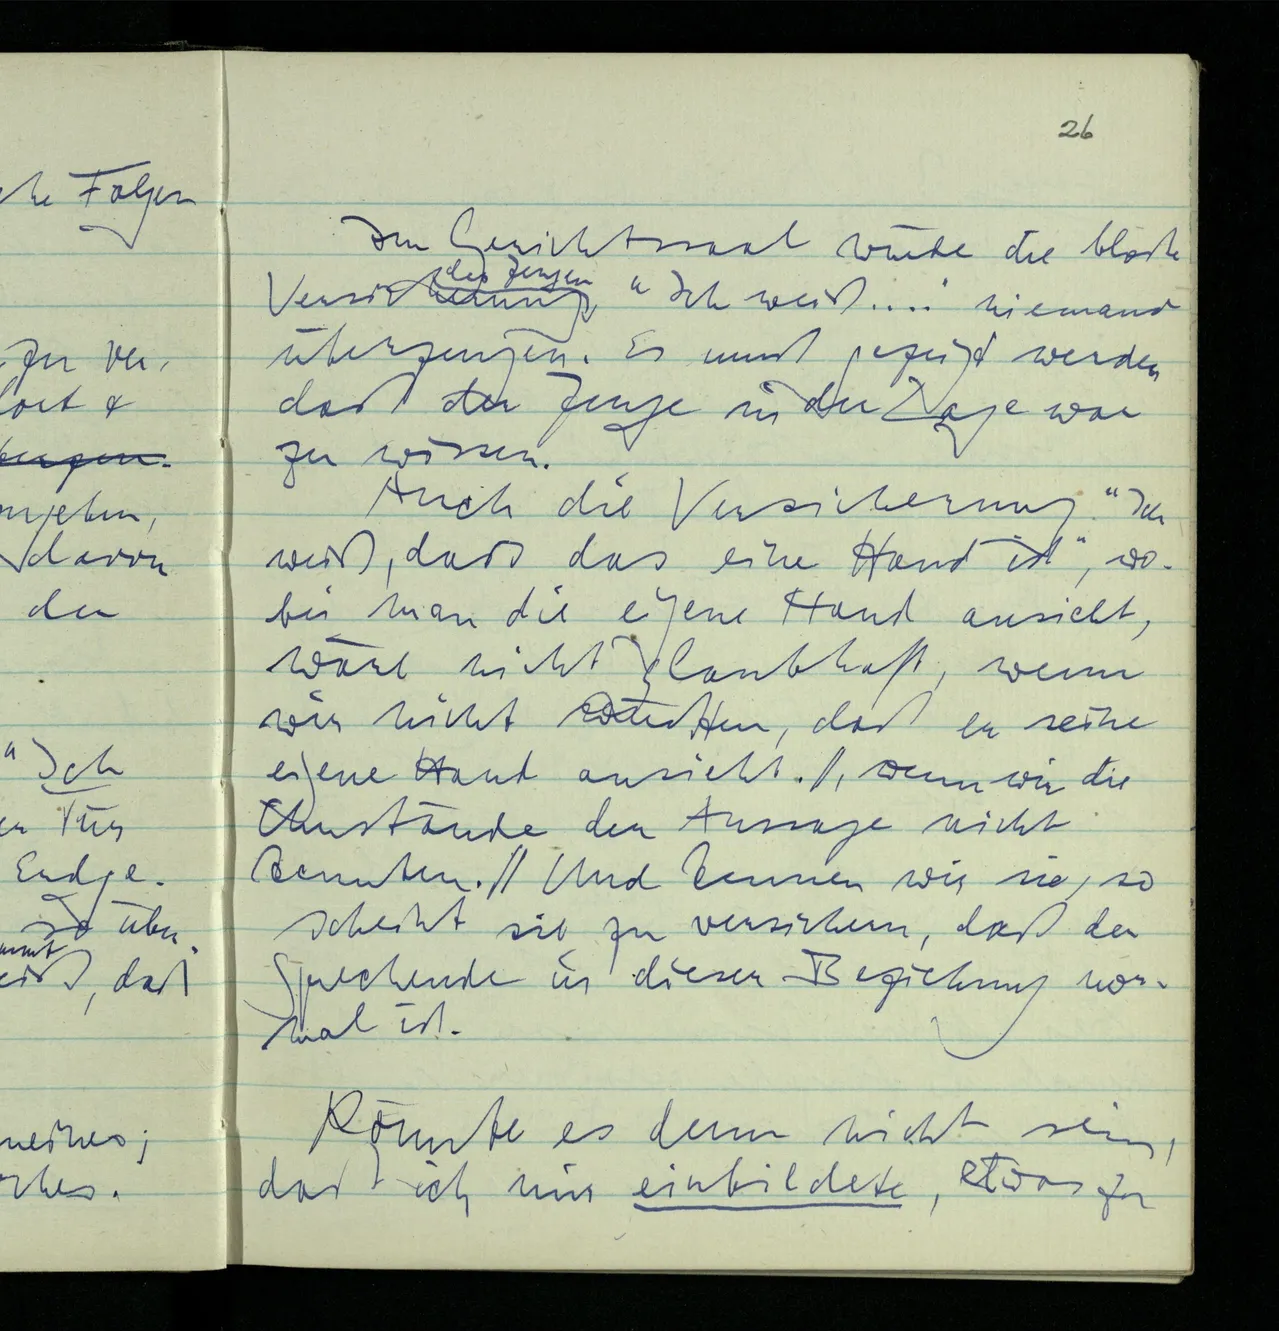 26
Im Gerichtssaal würde die bloße
Versicherung des Zeugen "Ich weiß...." niemand
überzeugen. Es muß gezeigt werden
daß der Zeuge in der Lage war
zu wissen.
Auch die Versicherung "Ich
weiß, daß das eine Hand ist", wo-
bei man die eigene Hand ansieht,
wäre nicht glaubhaft, wenn
wir nicht wüßten, daß er seine
eigene Hand ansieht. //, wenn wir die
Umstände der Aussage nicht
kennten. // Und kennen wir sie, so
scheint sie zu versichern, daß der
Sprechende in dieser Beziehung nor-
mal ist.
Könnte es denn nicht sein,
daß ich mir einbildete, etwas zu
che Folgen
zu ver-
fort &
angeben,
davon
der
"Ich
Tür
Endge-
so über-
weiß, daß
meines;
ches.